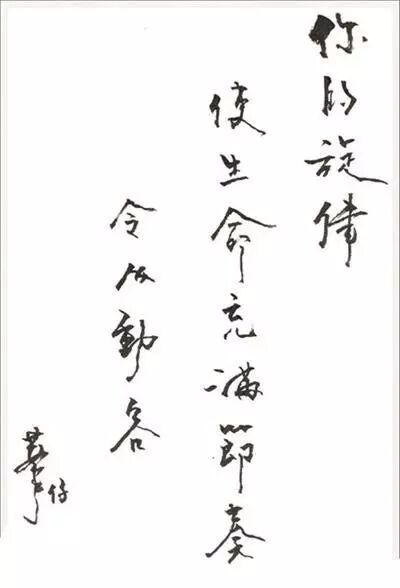 你的旋律
使生命充滿節奏
令人動容
華仔